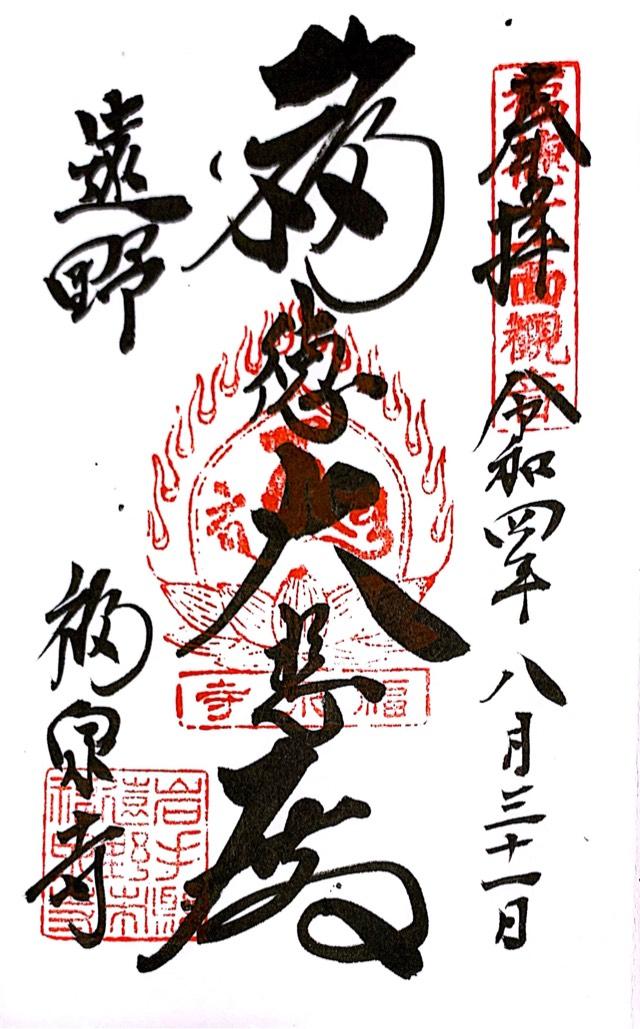 奉拝 令和四年八月三十一日
福徳大悲殿
遠野 福泉寺
面觀音
福泉寺
岩手縣
遠野市
福泉寺